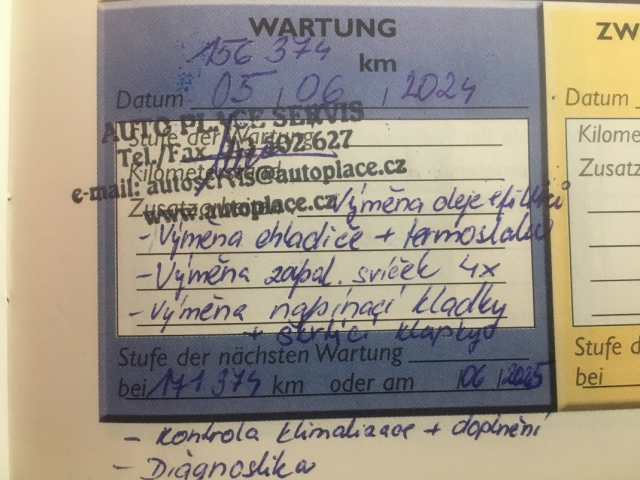 WARTUNG
ZW
156 374 km
Datum 05 / 06 / 2024
Datum
AUTO PLACE SERVIS
Stufe der Wartung
Kilome
Tel./Fax 627
Kilometerstand
Zusatz
e-mail: autoservis@autoplace.cz
Zusatzarbeiten - Výměna oleje + filtrů
www.autoplace.cz
- Výměna chladiče + termostatu
- Výměna zapal. svíček 4x
- Výměna napínací kladky
+ škrtící klapky
Stufe der nächsten Wartung
Stufe d
bei 171 374 km oder am 06 / 2025
bei
- Kontrola klimatizace + doplnění
- Diagnostika